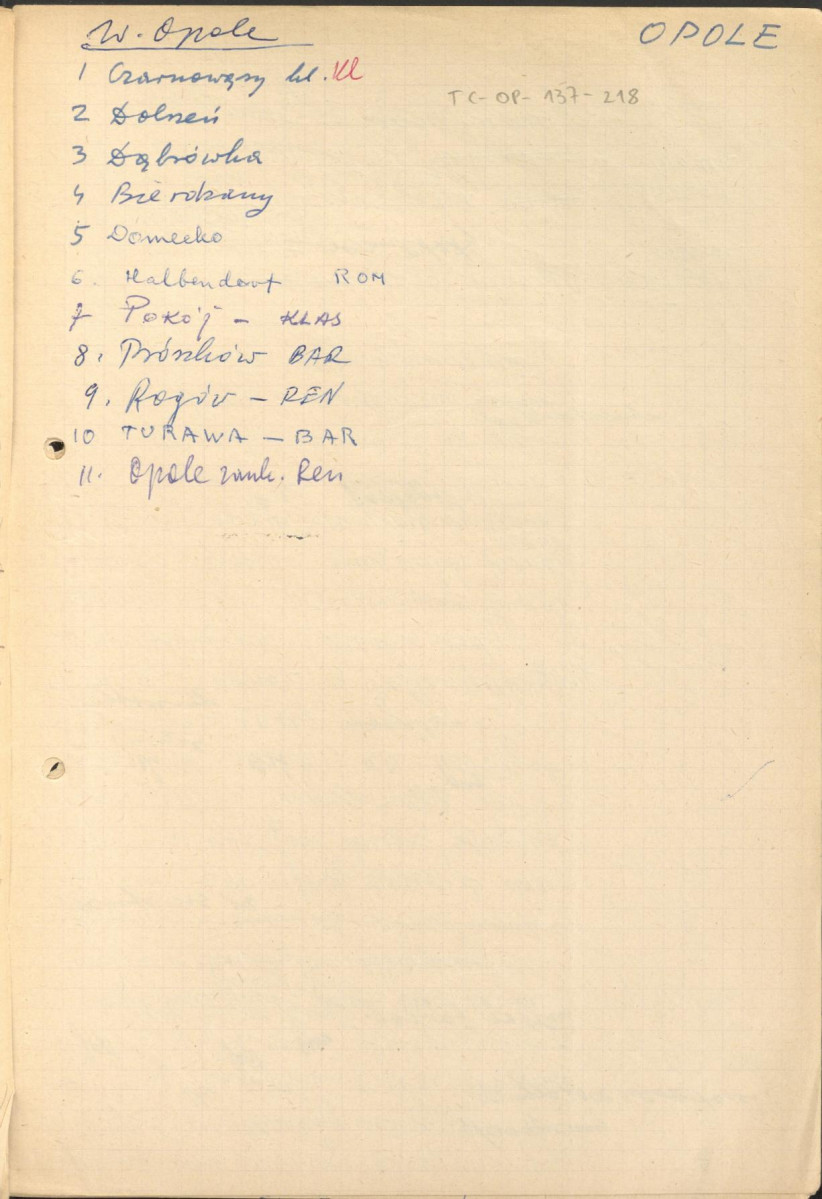 W. Opole
OPOLE
1 Czarnowąsy kl. Kl
TC-OP-137-218
2 Dobrzeń
3 Dąbrówka
4 Bierdzany
5 Domecko
6. Halbendorf ROM
7 Pokój - KLAS
8. Prószków BAR
9. Rogów - REN
10 TURAWA - BAR
11. Opole zamk. Ren